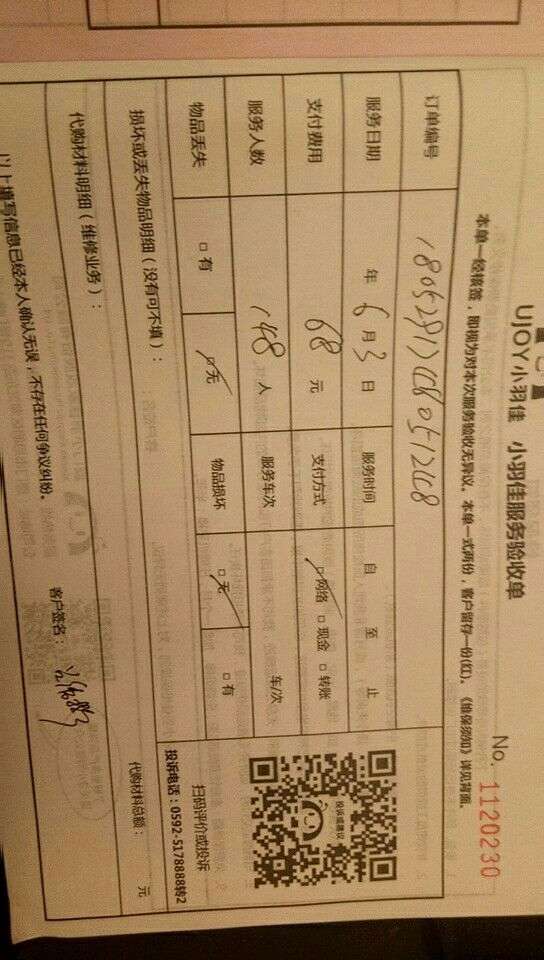 UJOY小羽佳 小羽佳服务验收单
No. 1120230
本单一经核签，即视为对本次服务验收无异议。本单一式两份，客户留存一份(红)。《维保须知》详见背面。
订单编号
服务日期 年 6 月 3 日 服务时间 自 至 止
支付费用 68 元 支付方式 ☑网络 □现金 □转账
服务人数 148 人 服务车次 车/次
物品丢失 □有 ☑无 物品损坏 ☑无 □有
投诉或建议
扫码评价或投诉
投诉电话：0592-5178888转2
损坏或丢失物品明细（没有可不填）：
代购材料明细（维修业务）：
代购材料总额： 元
以上填写信息已经本人确认无误，不存在任何争议纠纷。
客户签名：